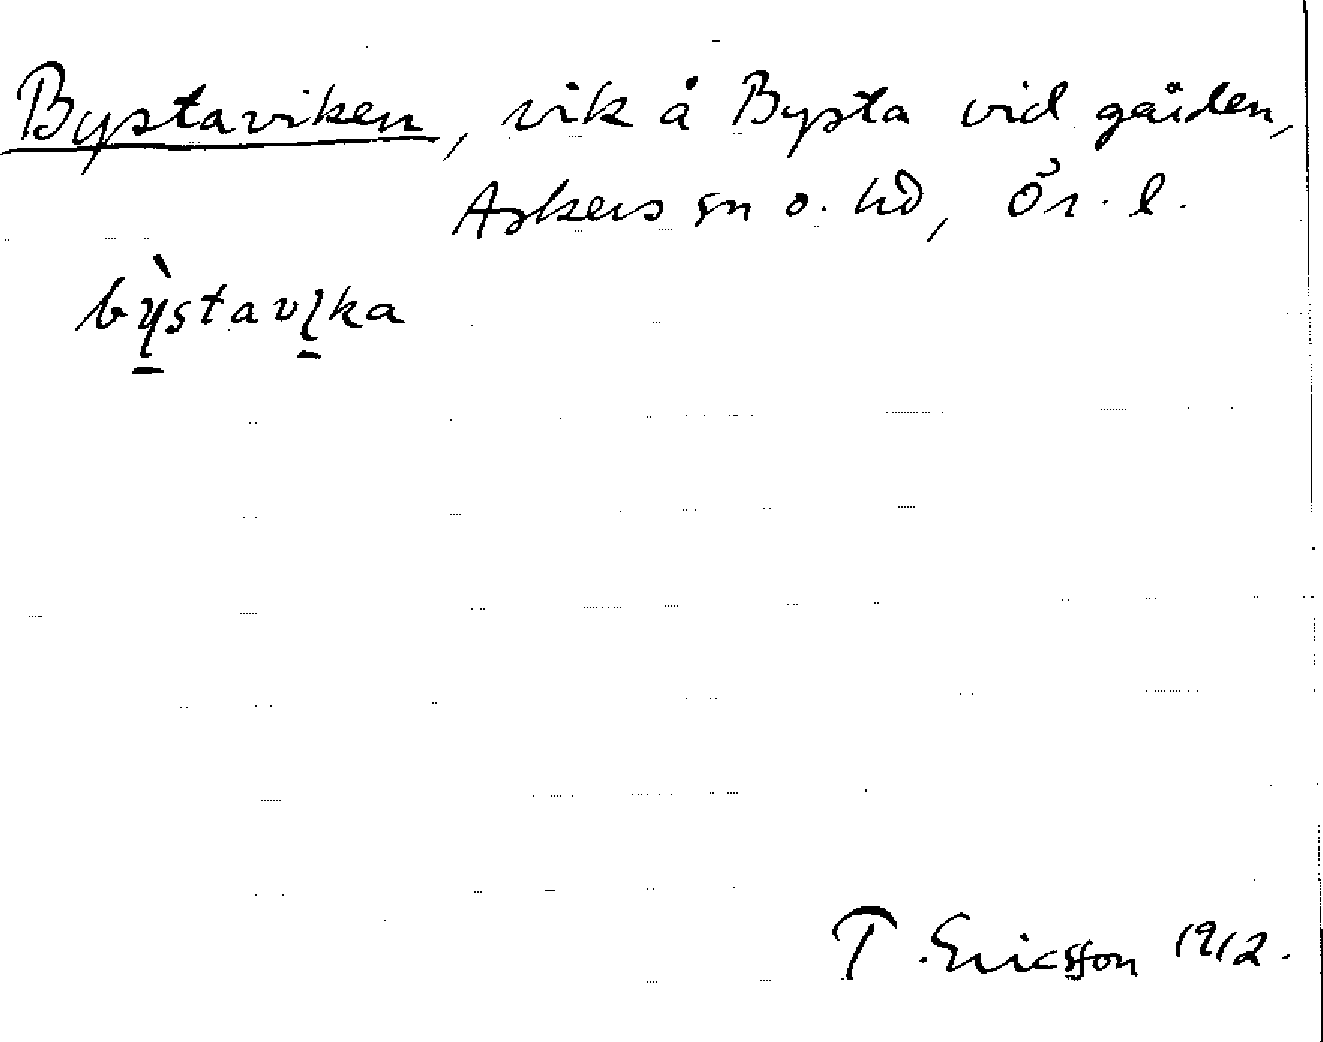 Bystaviken, vik å Bysta vid gården,
Askers sn o. hd, Ör. l.
bỳstavika
T. Ericsson 1912.